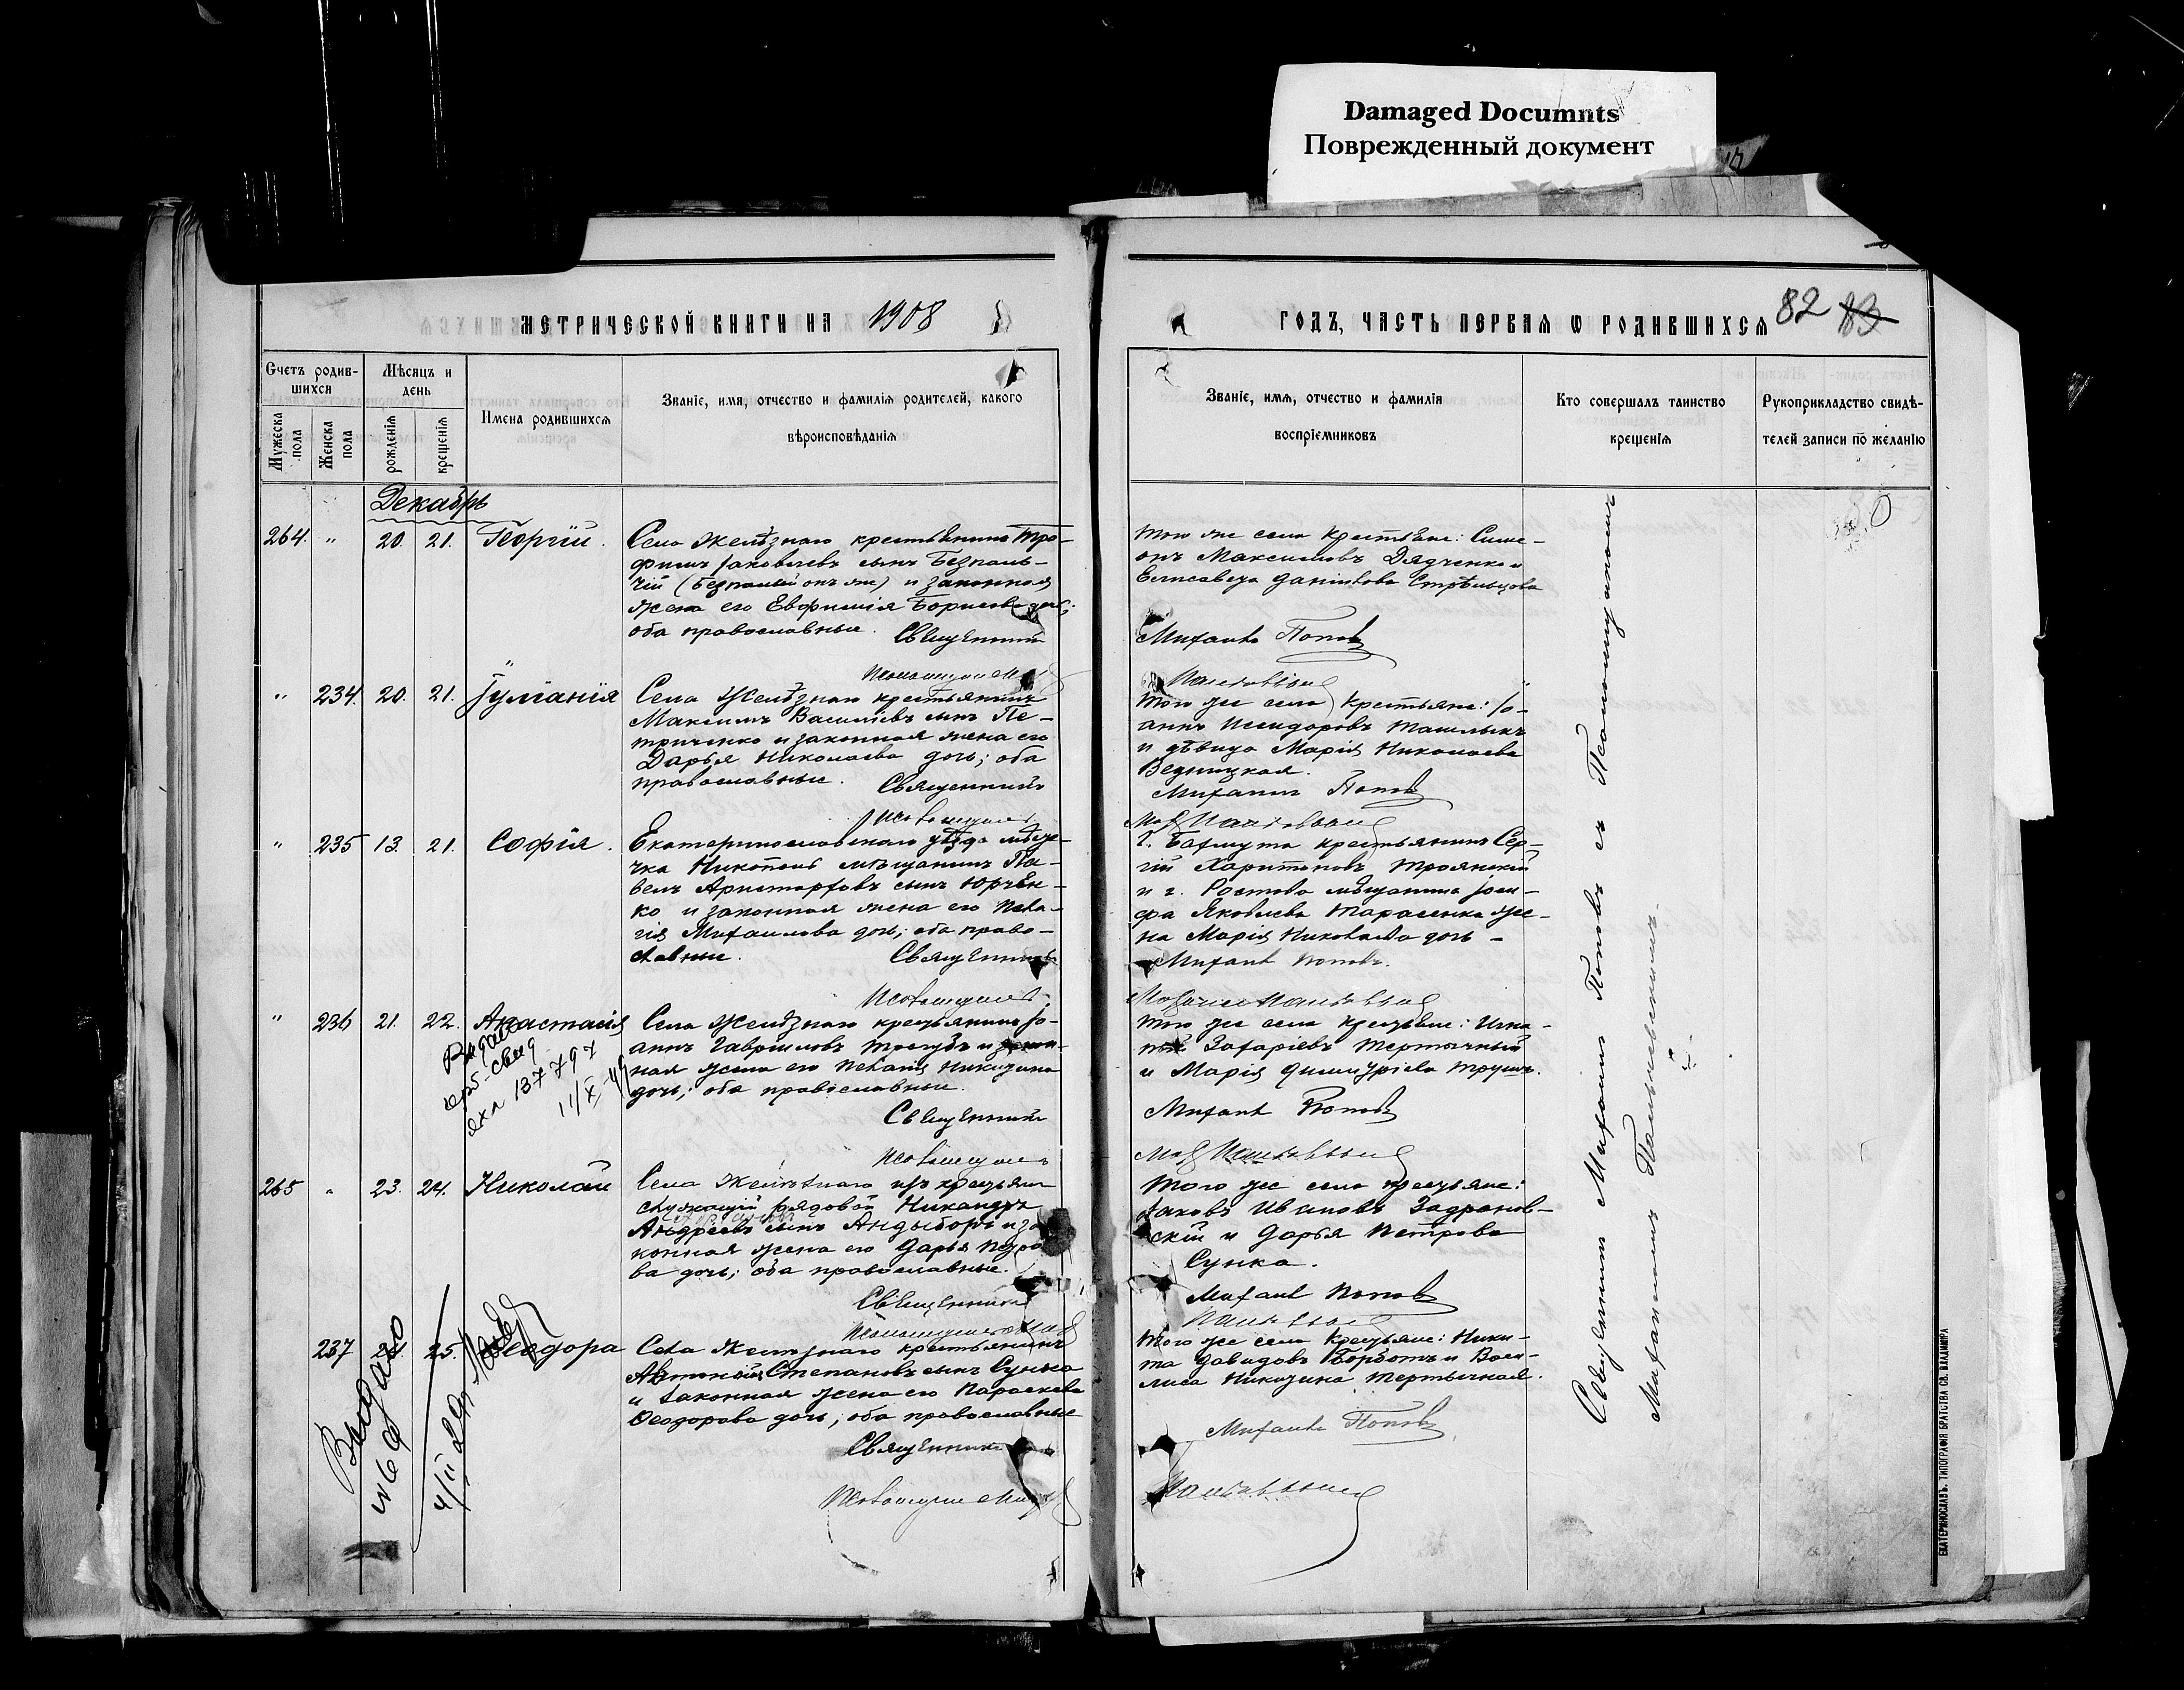 Damaged Documnts
Поврежденный документ
МЕТРИЧЕСКОЙ КНИГИ НА 1908
ГОДЪ, ЧАСТЬ ПЕРВАЯ О РОДИВШИХСЯ
82 83
Счетъ родив-
шихся
Мужеска
пола
Женска
пола
Мѣсяцъ и
день
рожденія
крещенія
Имена родившихся
Званіе, имя, отчество и фамилія родителей, какого
вѣроисповѣданія
Званіе, имя, отчество и фамилія
воспріемниковъ
Кто совершалъ таинство
крещенія
Рукоприкладство свидѣ-
телей записи по желанію
Декабрь
264. " 20. 21. Георгій.
Села Желѣзнаго крестьянинъ Тро-
фимъ Іаковлевъ сынъ Безпаль-
чій (Безпалый онъ же) и законная
жена его Евфимія Борисова дочь;
оба православные. Священникъ
того же села крестьяне: Симе-
онъ Максимовъ Дядченко и
Елисавета Даніилова Стрѣльцова
Михаилъ Поповъ
Псаломщикъ
" 234. 20. 21. Іуліанія
Села Желѣзнаго крестьянинъ
Максимъ Василіевъ сынъ Пе-
триченко и законная жена его
Дарья Николаева дочь; оба
православные. Священникъ
того же села крестьяне: Іо-
аннъ Исидоровъ Ташлыкъ
и дѣвица Марія Николаева
Ведницкая.
Михаилъ Поповъ
Псаломщикъ
" 235 13. 21. Софія.
Екатеринославскаго уѣзда мѣсте-
чка Никополя мѣщанинъ Па-
велъ Аристарховъ сынъ Юрчен-
ко и законная жена его Пела-
гія Михаилова дочь; оба право-
славные. Священникъ
г. Бахмута крестьянинъ Сер-
гій Харитоновъ Троянскій
и г. Ростова мѣщанина Іоси-
фа Яковлева Тарасенка же-
на Марія Николаева дочь -
Михаилъ Поповъ.
Псаломщикъ
" 236 21. 22. Анастасія
Села Желѣзнаго крестьянинъ Іо-
аннъ Гавриловъ и закон-
ная жена его Пелагія Никитина
дочь; оба православные.
Священникъ
того же села крестьяне: Игна-
тій Захаріевъ Тертычный
и Марія Димитріева Трушъ.
Михаилъ Поповъ
137797
11/X 49
Псаломщикъ
265 " 23. 24. Николай
Села Желѣзнаго изъ крестьян
служащій рядовой Никандръ
Андреевъ сынъ Андыборъ и за-
конная жена его Дарья Петро-
ва дочь; оба православные.
Священникъ
того же села крестьяне:
Іаковъ Ивановъ Задранов-
скій и Дарья Петрова
Сунка.
Михаилъ Поповъ
Псаломщикъ
237 25. Ѳеодора
Села Желѣзнаго крестьянинъ
Антоній Степановъ сынъ Сунка
и законная жена его Параскева
Ѳеодорова дочь; оба православные
Священникъ
того же села крестьяне: Ники-
та Давидовъ Борботъ и Васи-
лиса Никитина Тертычная.
Михаилъ Поповъ
Псаломщикъ
Выдано
4/II 29
Священникъ Михаилъ Поповъ съ Псаломщикомъ
ЕКАТЕРИНОСЛАВЪ. ТИПОГРАФІЯ БРАТСТВА СВ. ВЛАДИМІРА